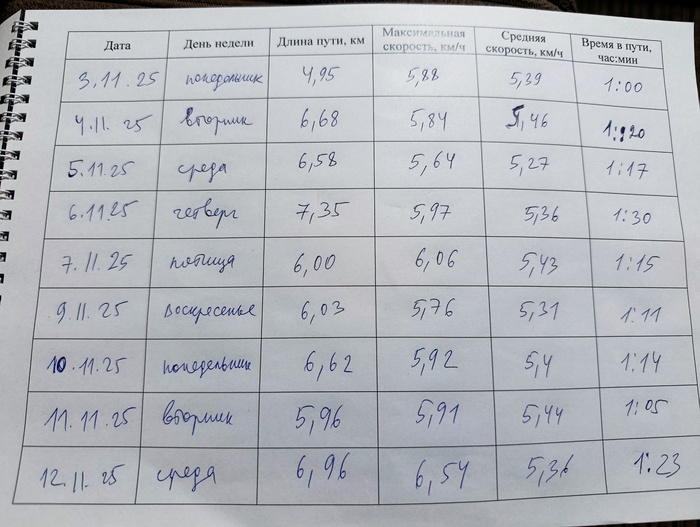 Дата День недели Длина пути, км Максимальная скорость, км/ч Средняя скорость, км/ч Время в пути, час:мин
3.11.25 понедельник 4,95 5,88 5,39 1:00
4.11.25 вторник 6,68 5,84 5,46 1:20
5.11.25 среда 6,58 5,64 5,27 1:17
6.11.25 четверг 7,35 5,97 5,36 1:30
7.11.25 пятница 6,00 6,06 5,43 1:15
9.11.25 воскресенье 6,03 5,76 5,31 1:11
10.11.25 понедельник 6,62 5,92 5,4 1:14
11.11.25 вторник 5,96 5,91 5,44 1:05
12.11.25 среда 6,96 6,54 5,36 1:23